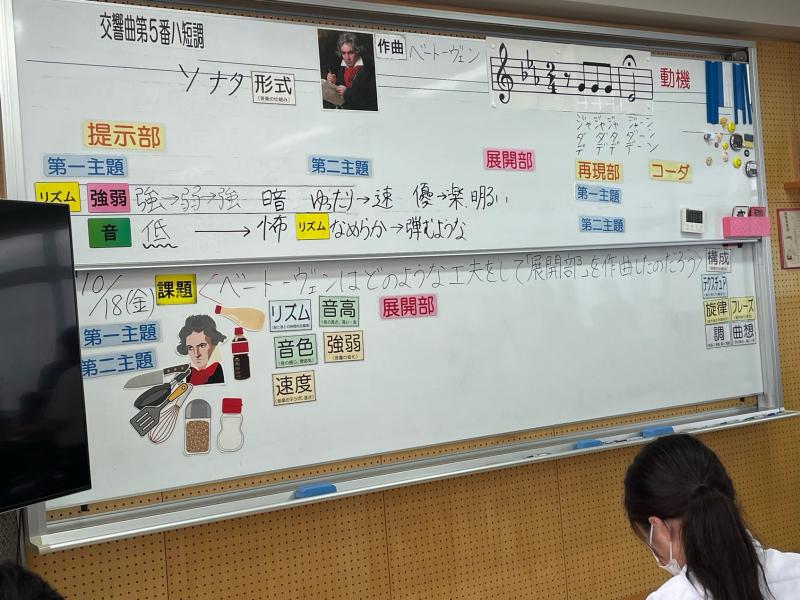 交響曲第5番ハ短調
作曲 ベートーヴェン
ソナタ 形式
動機
ジャジャジャ ジャーン
ダ ダ ダ ダーン
デ デ デ デーン
提示部
展開部
再現部 コーダ
第一主題 第二主題
第一主題
リズム 強弱 強→弱→強 暗 ゆったり→速 優→楽 明るい
音 低 → 怖 リズム なめらか→弾むような
第二主題
10/18(金) 課題 ベートーヴェンはどのような工夫をして「展開部」を作曲したのだろう
第一主題
第二主題
リズム 音高
音色 強弱
速度
展開部
構成
テクスチュア
旋律 フレーズ
調 曲想